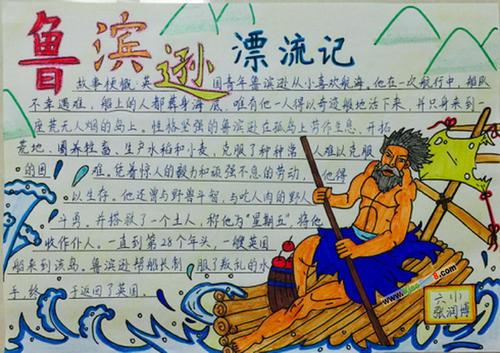 鲁滨逊漂流记
故事梗概:英 国青年鲁滨逊从小喜欢航海。他在一次航行中,船队
不幸遇难,船上的人都葬身海底,唯有他一人得以奇迹般地活下来,并只身来到一
座荒无人烟的岛上。性格坚强的鲁滨逊在孤岛上劳作生息,开拓
荒地、圈养牲畜,生产水稻和小麦,克服了种种常 人难以克服
的困 难,凭着惊人的毅力和顽强不息的劳动, 他得
以生存。他还曾与野兽斗智,与吃人肉的野人
斗勇。并搭救了一个土人,称他为“星期五”,将他
收作仆人。一直到第28个年头,一艘英国
船来到该岛。鲁滨逊帮船长制 服了叛乱的水
手,终 于返回了英国。
六(1)
张润博